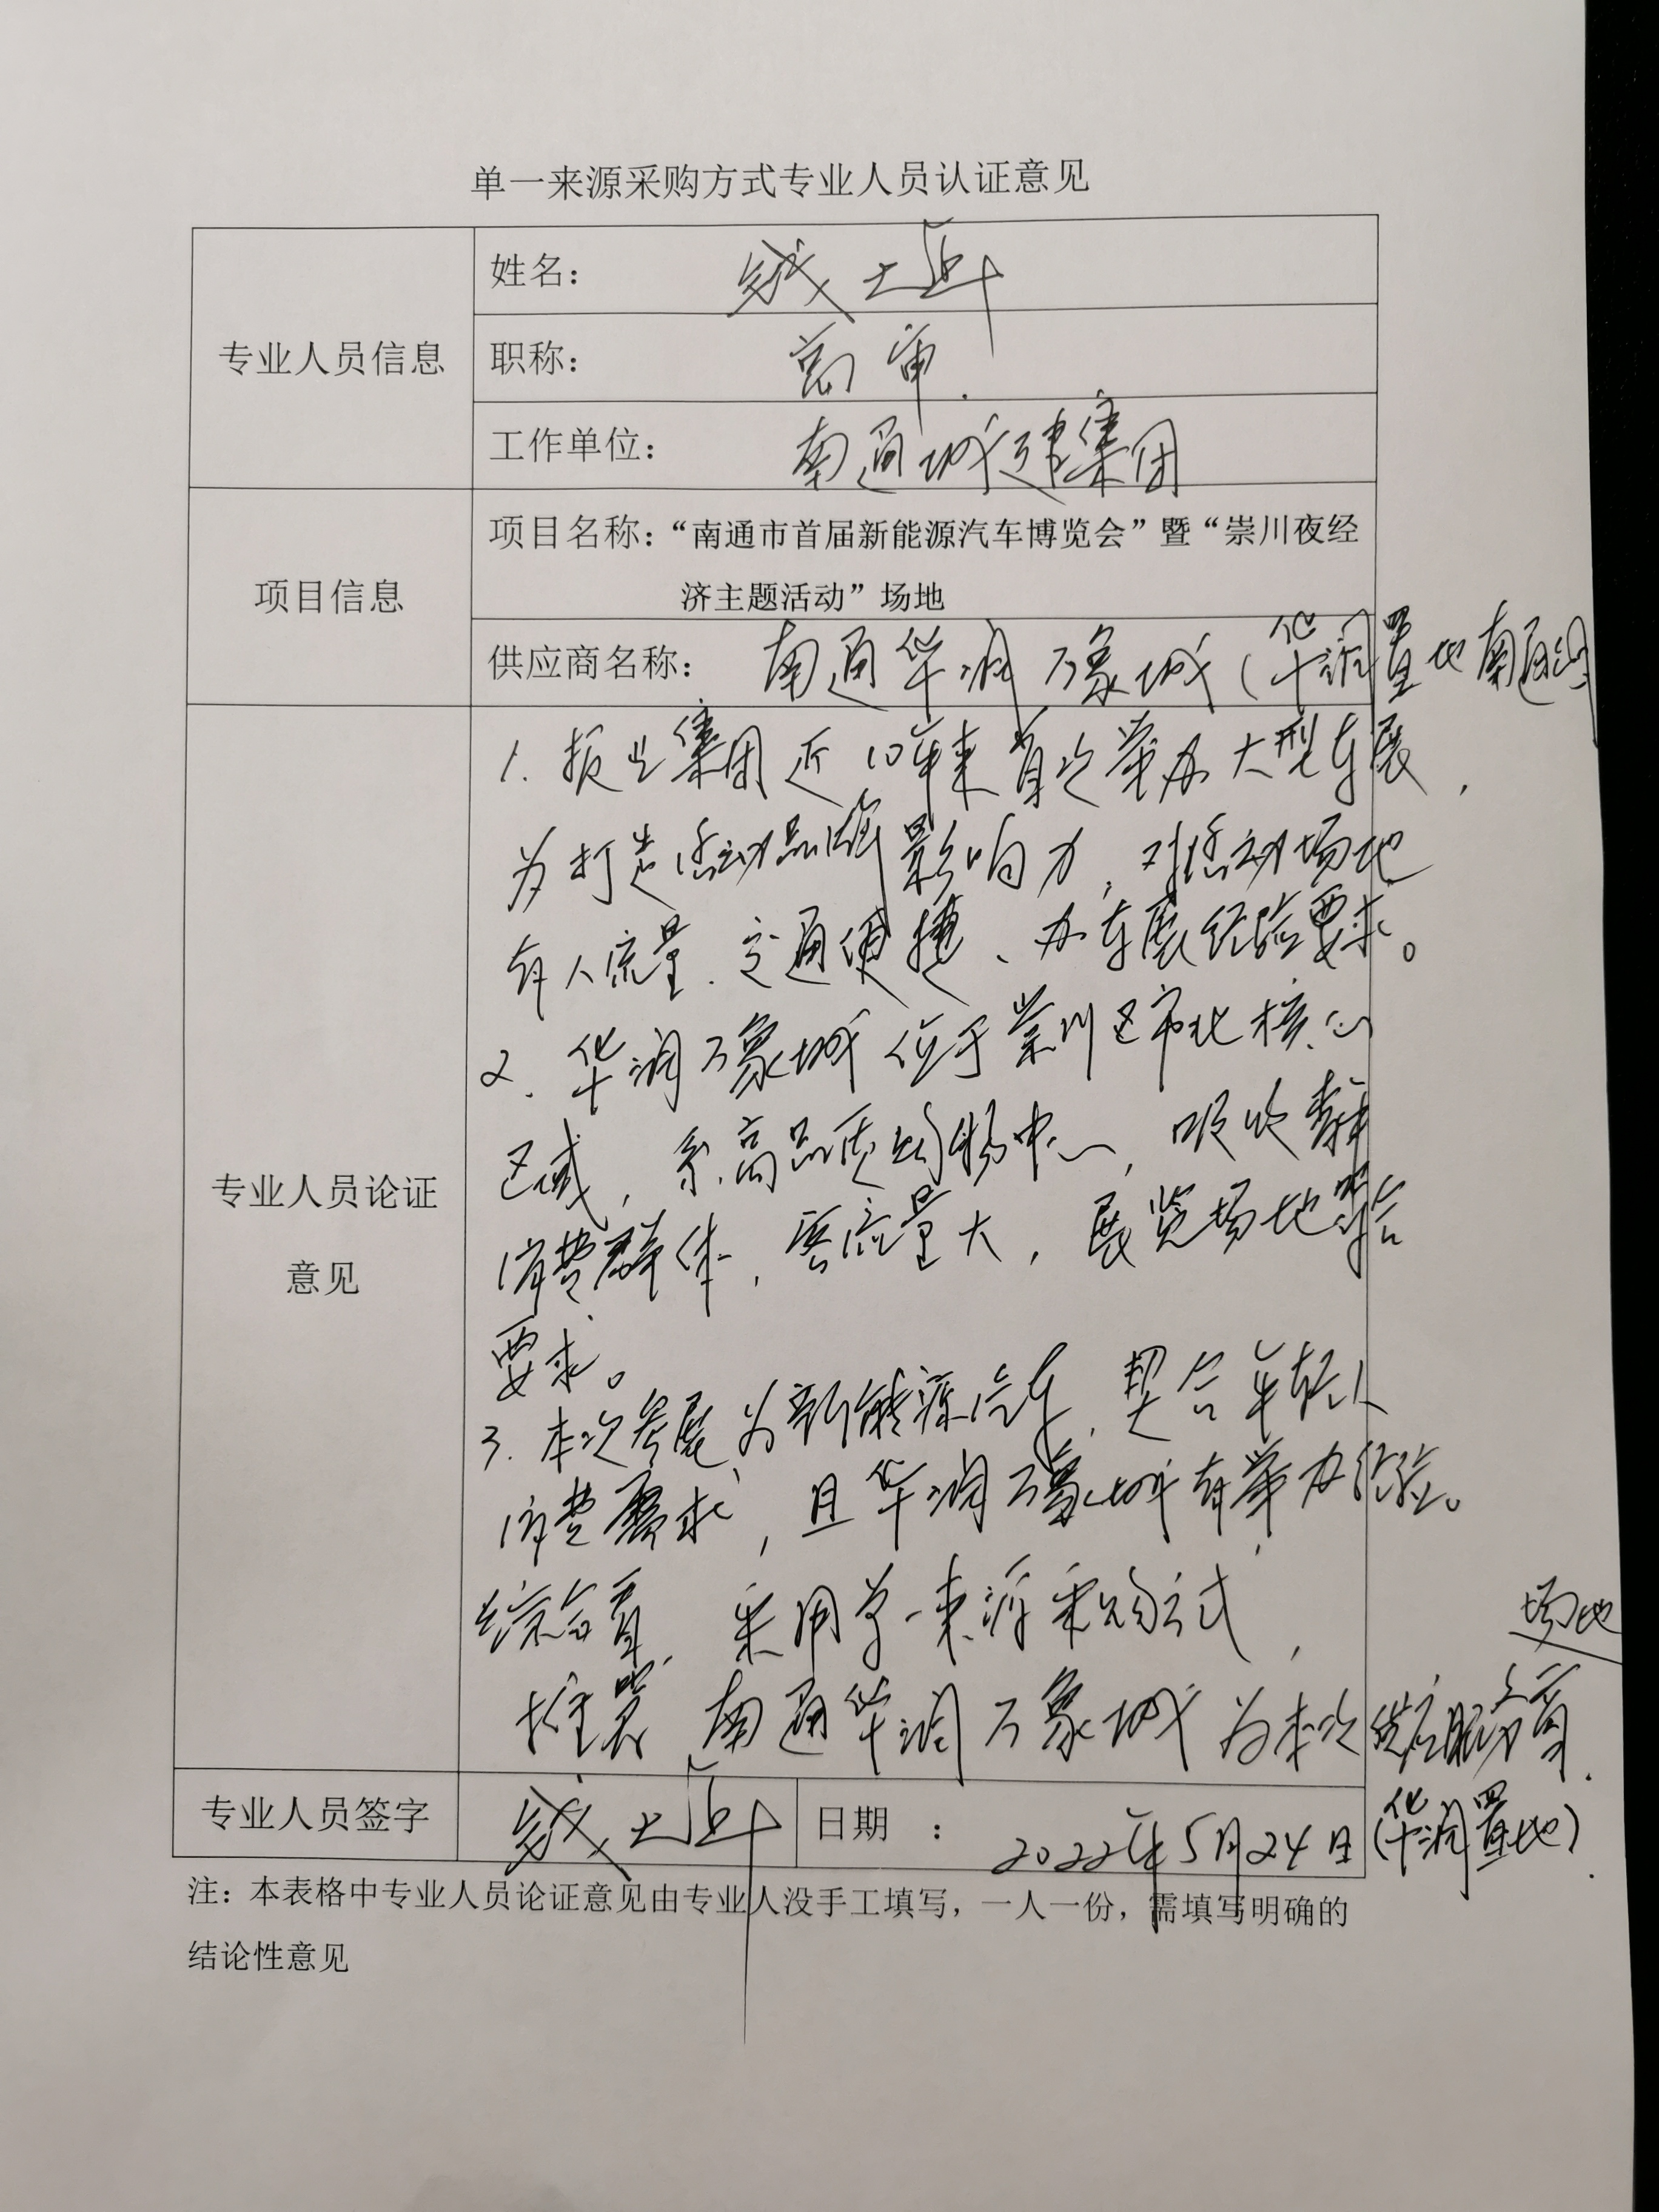 单一来源采购方式专业人员认证意见
专业人员信息
姓名：钱
职称：高审.
工作单位：南通城建集团
项目信息
项目名称：“南通市首届新能源汽车博览会”暨“崇川夜经
济主题活动”场地
供应商名称：南通华润万象城（华润置地南通
专业人员论证
意见
1. 报业集团近10年来首次举办大型车展，
为打造活动品牌影响力，对活动场地
有人流量、交通便捷、办车展经验要求。
2、华润万象城位于崇川区市北核心
区域，系高品质购物中心，吸收
消费群体，客流量大，展览场地符合
要求。
3. 本次参展为新能源汽车，契合年轻人
消费需求，且华润万象城有举办经验。
综合看，采用单一来源采购方式，
场地
推荐南通华润万象城为本次供应服务商.
（华润置地）
专业人员签字 钱
日期 ：2022年5月24日
注：本表格中专业人员论证意见由专业人没手工填写，一人一份，需填写明确的
结论性意见